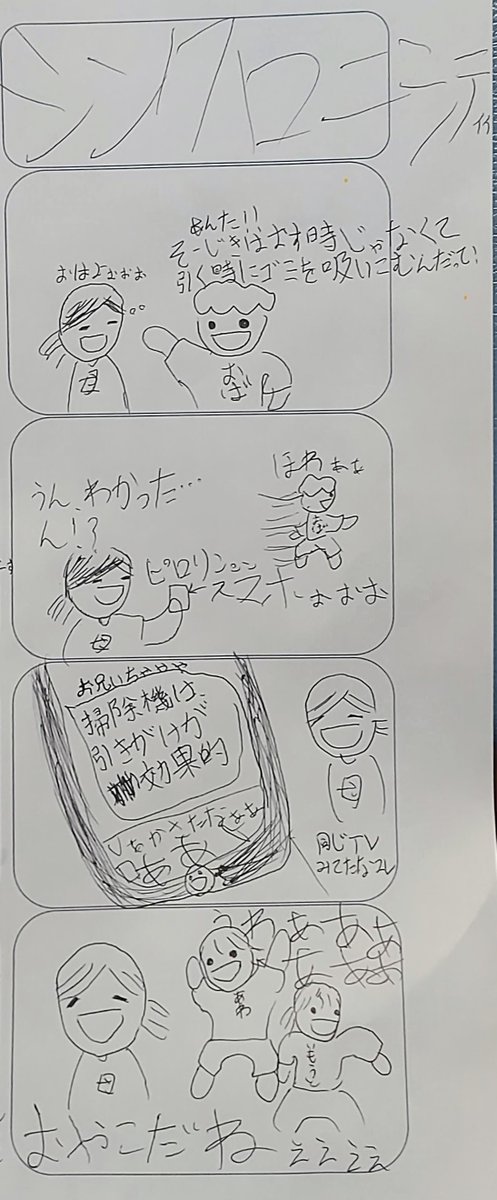 シンクロニティ
イイ
おはよぉぉぉ
あんた!!
そーじきはおす時じゃなくて
引く時にゴミを吸いこむんだって!
母
おば
うん、わかった…
ん!?
ほわぁぁ
ピロリンョョ
スマホぉぉぉ
母
お兄いちゃゃゃ
掃除機は、
引きがけが
効果的
母
同じTV
みてたな
うわぁぁぁぁ
ああああ
母
いもうと
おやこだねぇぇぇぇ